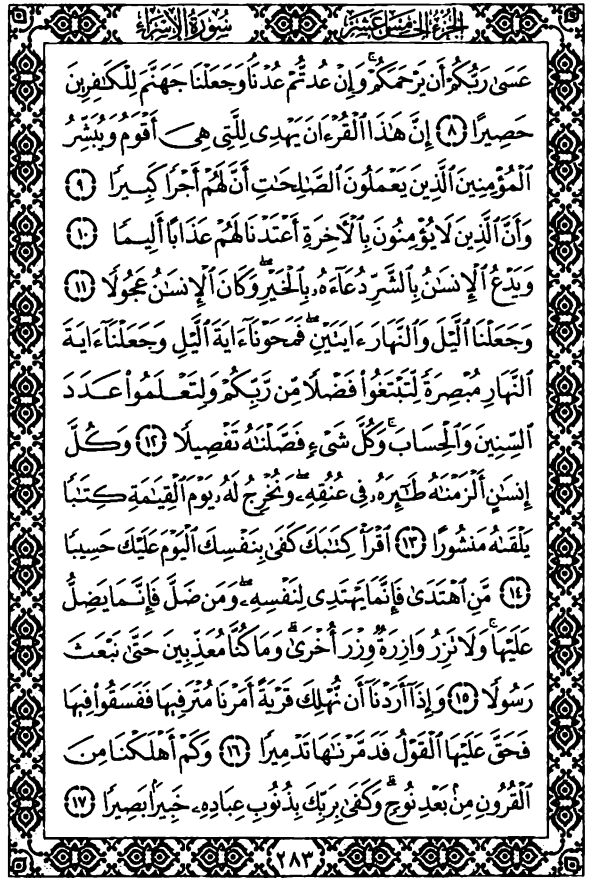 الجزء الخامس عشر سورة الإسراء
عَسَىٰ رَبُّكُمْ أَن يَرْحَمَكُمْ ۚ وَإِنْ عُدتُّمْ عُدْنَا ۘ وَجَعَلْنَا جَهَنَّمَ لِلْكَافِرِينَ
حَصِيرًا ٨ إِنَّ هَـٰذَا الْقُرْءَانَ يَهْدِى لِلَّتِى هِىَ أَقْوَمُ وَيُبَشِّرُ
الْمُؤْمِنِينَ الَّذِينَ يَعْمَلُونَ الصَّـٰلِحَـٰتِ أَنَّ لَهُمْ أَجْرًا كَبِيرًا ٩
وَأَنَّ الَّذِينَ لَا يُؤْمِنُونَ بِالْأَخِرَةِ أَعْتَدْنَا لَهُمْ عَذَابًا أَلِيمًا ١٠
وَيَدْعُ الْإِنسَـٰنُ بِالشَّرِّ دُعَآءَهُۥ بِالْخَيْرِ ۖ وَكَانَ الْإِنسَـٰنُ عَجُولًا ١١
وَجَعَلْنَا الَّيْلَ وَالنَّهَارَ ءَايَتَيْنِ ۖ فَمَحَوْنَآ ءَايَةَ الَّيْلِ وَجَعَلْنَآ ءَايَةَ
النَّهَارِ مُبْصِرَةً لِّتَبْتَغُوا۟ فَضْلًا مِّن رَّبِّكُمْ وَلِتَعْلَمُوا۟ عَدَدَ
السِّنِينَ وَالْحِسَابَ ۚ وَكُلَّ شَىْءٍ فَصَّلْنَـٰهُ تَفْصِيلًا ١٢ وَكُلَّ
إِنسَـٰنٍ أَلْزَمْنَـٰهُ طَـٰٓئِرَهُۥ فِى عُنُقِهِۦ ۖ وَنُخْرِجُ لَهُۥ يَوْمَ الْقِيَـٰمَةِ كِتَـٰبًا
يَلْقَىٰهُ مَنشُورًا ١٣ اقْرَأْ كِتَـٰبَكَ كَفَىٰ بِنَفْسِكَ الْيَوْمَ عَلَيْكَ حَسِيبًا
١٤ مَّنِ اهْتَدَىٰ فَإِنَّمَا يَهْتَدِى لِنَفْسِهِۦ ۖ وَمَن ضَلَّ فَإِنَّمَا يَضِلُّ
عَلَيْهَا ۚ وَلَا تَزِرُ وَازِرَةٌ وِزْرَ أُخْرَىٰ ۗ وَمَا كُنَّا مُعَذِّبِينَ حَتَّىٰ نَبْعَثَ
رَسُولًا ١٥ وَإِذَآ أَرَدْنَآ أَن نُّهْلِكَ قَرْيَةً أَمَرْنَا مُتْرَفِيهَا فَفَسَقُوا۟ فِيهَا
فَحَقَّ عَلَيْهَا الْقَوْلُ فَدَمَّرْنَـٰهَا تَدْمِيرًا ١٦ وَكَمْ أَهْلَكْنَا مِنَ
الْقُرُونِ مِنۢ بَعْدِ نُوحٍ ۗ وَكَفَىٰ بِرَبِّكَ بِذُنُوبِ عِبَادِهِۦ خَبِيرًۢا بَصِيرًا ١٧
٢٨٣